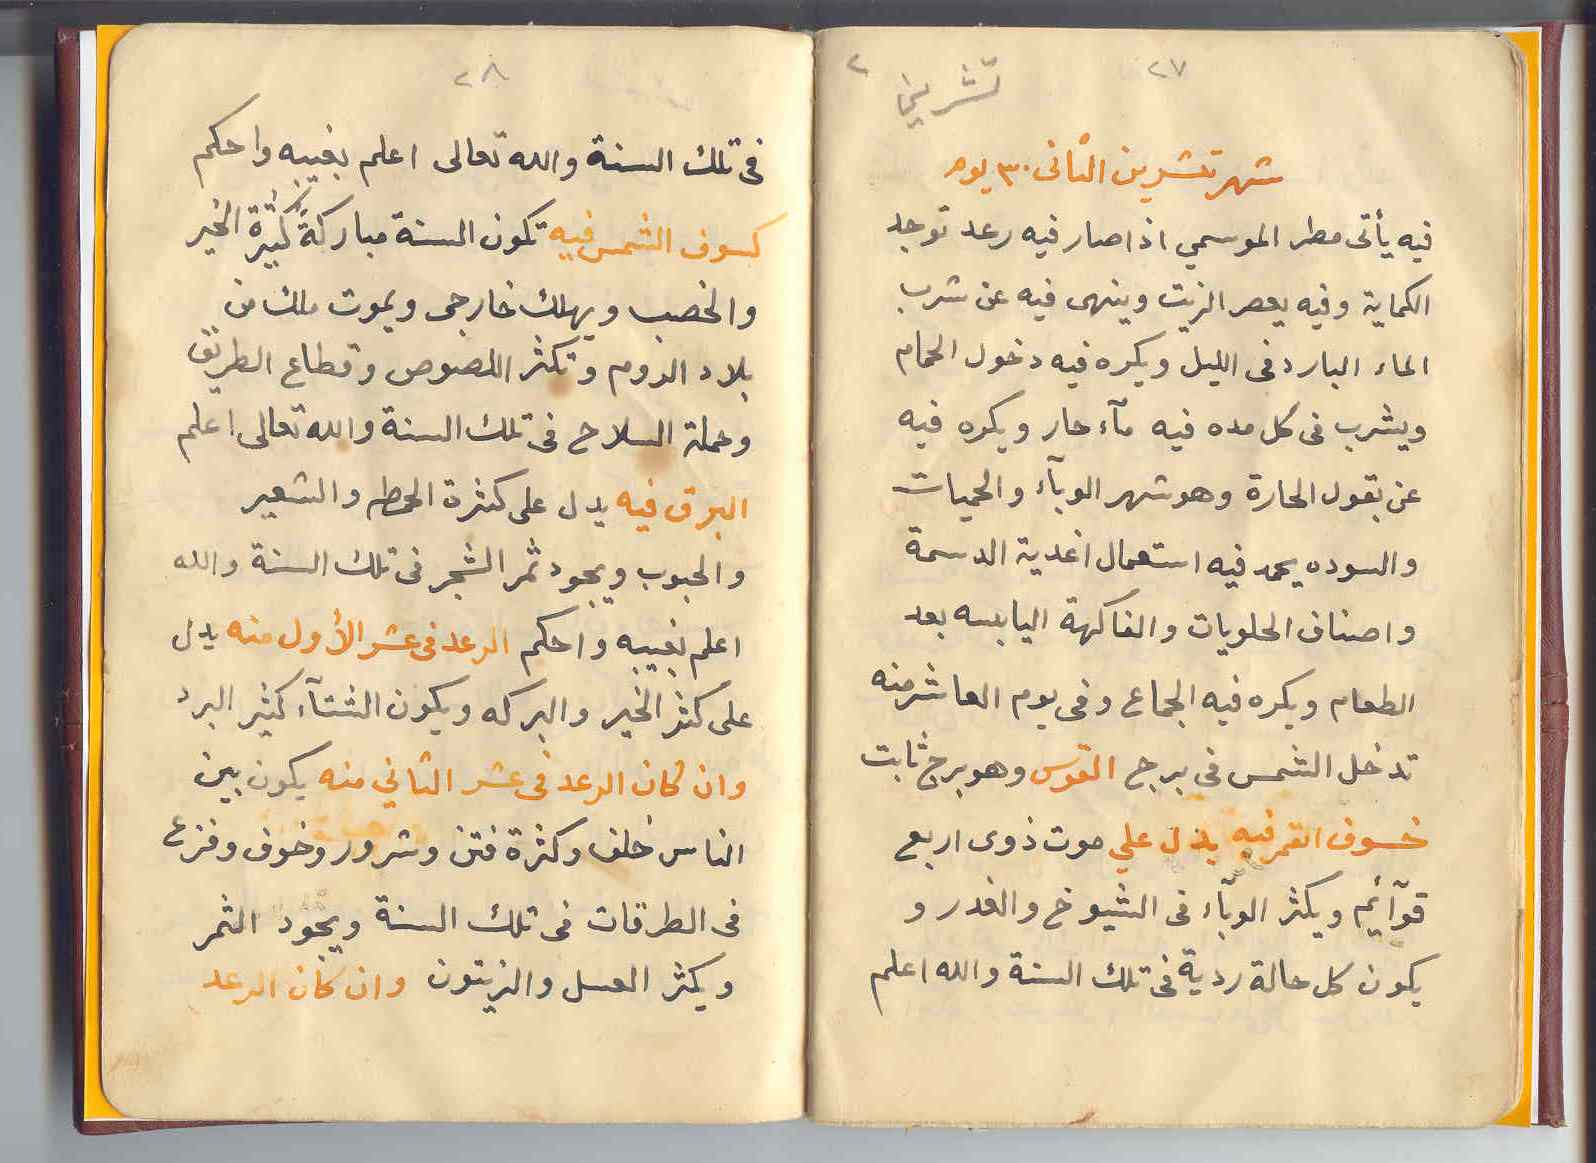 ٢٧
تشريني ٢
شهر تشرين الثانى ٣٠ يوم
فيه يأتى مطر الموسمي اذا صار فيه رعد توجد
الكماية وفيه يعصر الزيت وينهى فيه عن شرب
الماء البارد فى الليل ويكره فيه دخول الحمام
ويشرب فى كل مده فيه مآء حار ويكره فيه
عن بقول الحارة وهو شهر الوبآء والحميات
والسوده يحمد فيه استعمال اغدية الدسمة
واصناف الحلويات والفاكهة اليابسه بعد
الطعام ويكره فيه الجماع وفى يوم العاشر منه
تدخل الشمس فى برج القوس وهو برج ثابت
خسوف القمر فيه يدل علي موت ذوى اربع
قوآئم ويكثر الوبآء فى الشيوخ والغدر و
يكون كل حالة ردية فى تلك السنة والله اعلم
٢٨
فى تلك السنة والله تعالى اعلم بغيبه واحكم
كسوف الشمس فيه تكون السنة مباركةً كثيرة الخير
والخصب ويهلك خارجى ويموت ملك من
بلاد الروم وتكثر اللصوص وقطاع الطريق
وحملة السلاح فى تلك السنة والله تعالى اعلم
البرق فيه يدل على كثرة الحطم والشعير
والحبوب ويجود ثمر الشجر فى تلك السنة والله
اعلم بغيبه واحكم الرعد فى عشر الأول منه يدل
على كثر الخير والبركه ويكون الشتآء كثير البرد
وان كان الرعد فى عشر الثاني منه يكون بين
الناس خلف وكثرة فتن وشرور وخوف وفزع
فى الطرقات فى تلك السنة ويجود الثمر
ويكثر العسل والزيتون وان كان الرعد